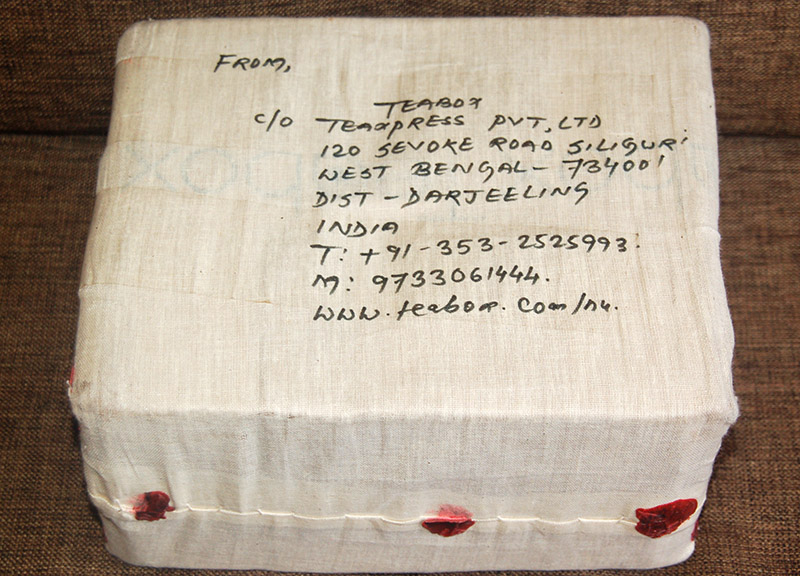 FROM,
TEABOX
c/o TEAXPRESS PVT, LTD
120 SEVOKE ROAD SILIGURI
WEST BENGAL - 734001
DIST - DARJEELING
INDIA
T: +91-353-2525993.
M: 9733061444.
www.teabox.com/ru.